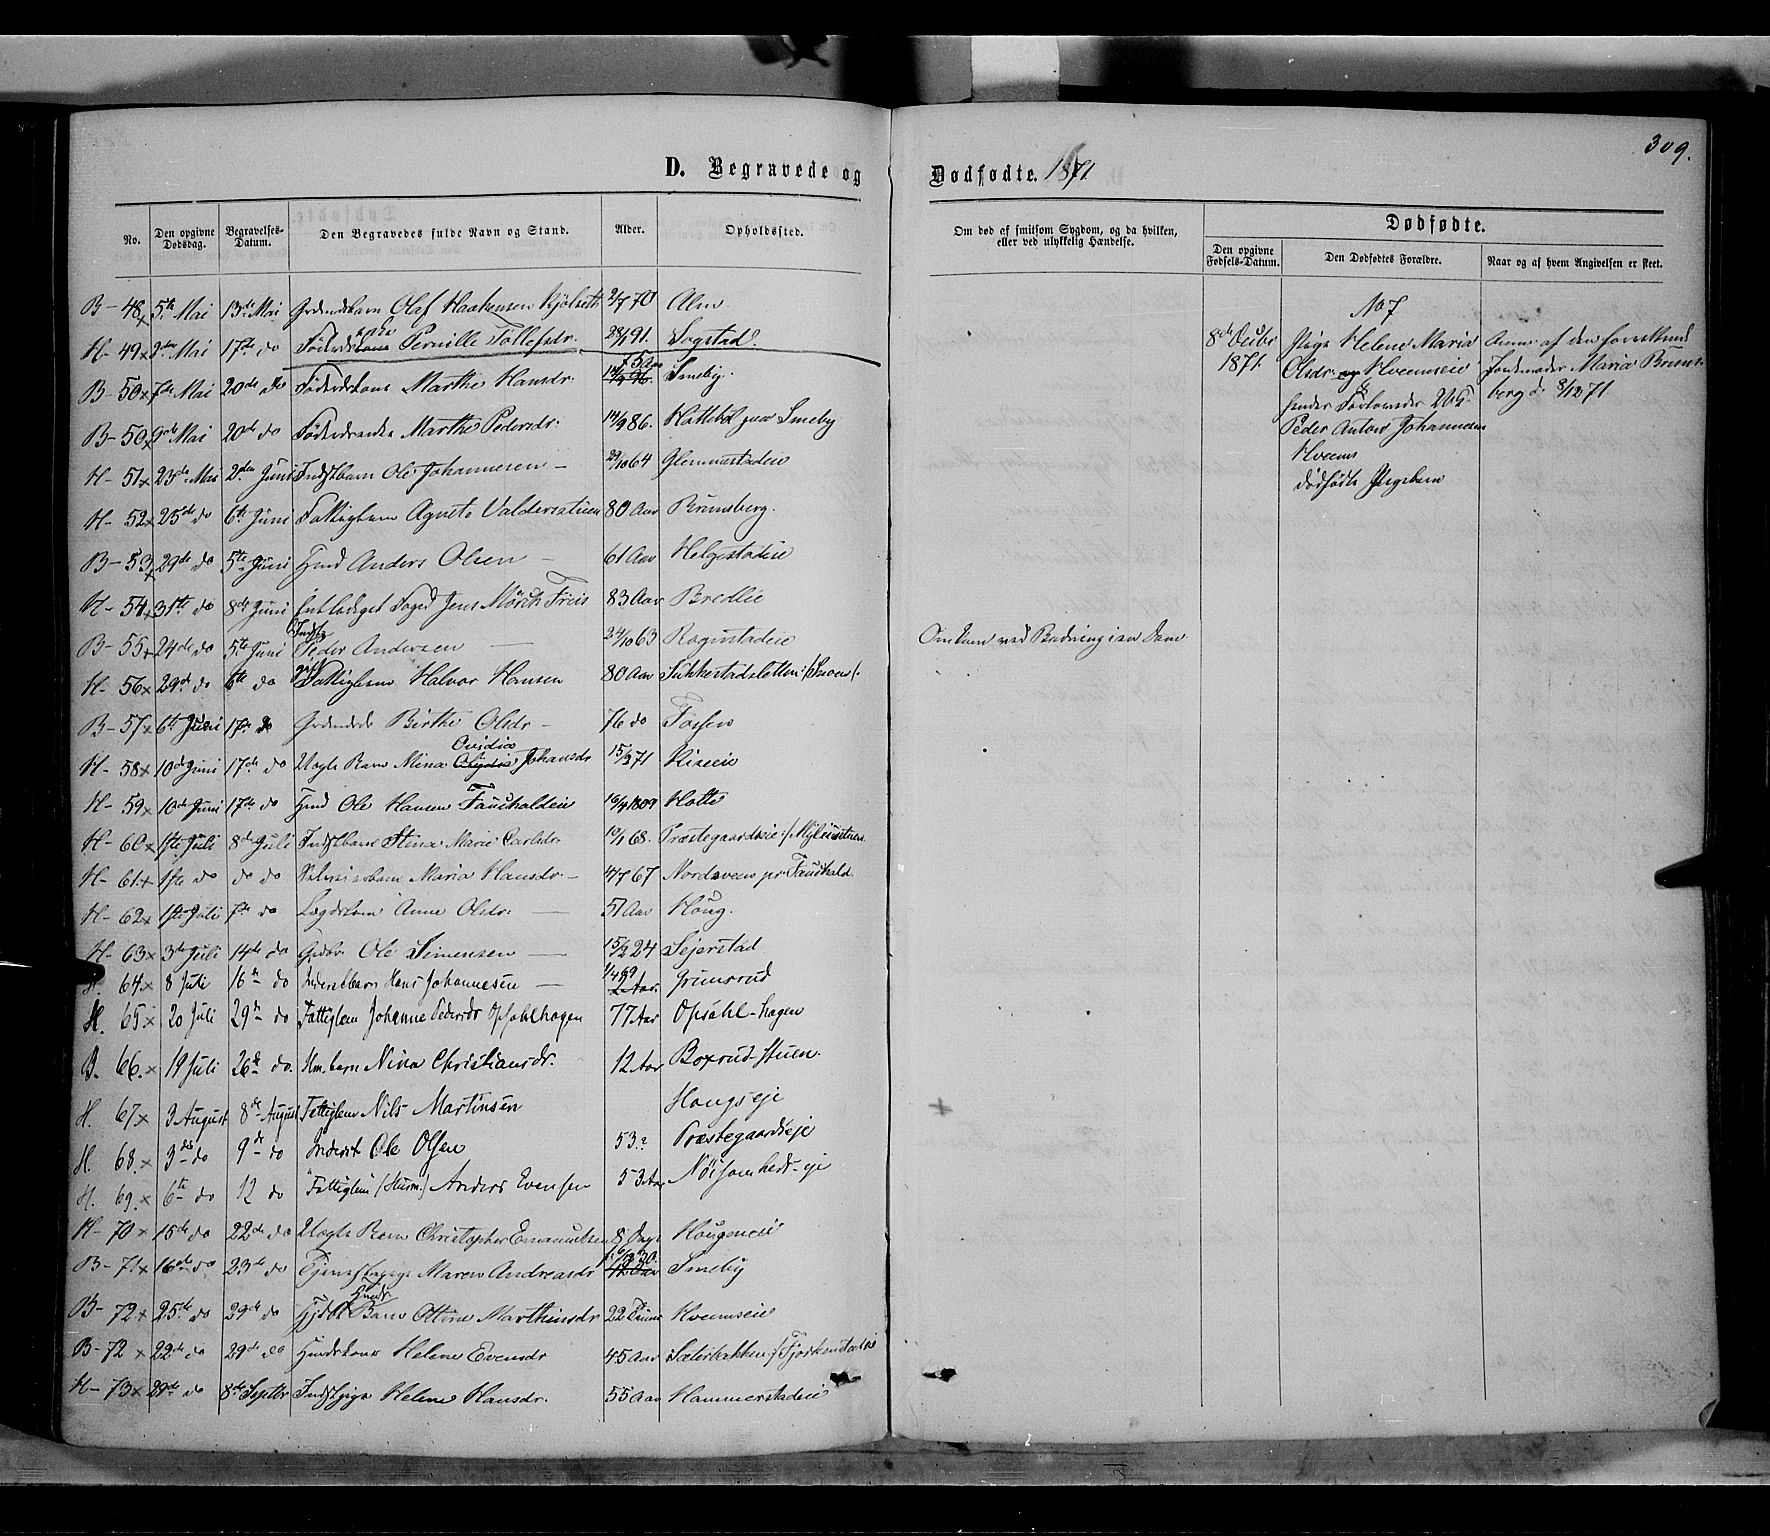 309.
D. Begravede og Dødfødte. 1871.
No.
Den opgivne Dødsdag.
Begravelses-Datum.
Den Begravedes fulde Navn og Stand.
Alder.
Opholdssted.
Om død af smitsom Sygdom, og da hvilken, eller ved ulykkelig Hændelse.
Dødfødte.
Den opgivne Fødsels-Datum.
Den Dødfødtes Forældre.
Naar og af hvem Angivelsen er skeet.
B- 48x 5te Mai 13de Mai Grdmdsbarn Olaf Haakensen Kjølseth 2/7 70 Alm
H- 49x Mai 17de do Pernille Tollefsdr. 28/1 91. Sogstad.
B- 50x 7de Mai 20de do Føderdskone Marthe Hansdr. Smeby.
B- 50x 9de Mai 20de do Føderdsenke Marthe Pedersdr. 14/9 86. Hattebøl paa Smeby
H- 51x 23de Mai 2den Juni Indstbarn Ole Johannesen – 29/10 64 Glemmestadeie
H- 52x 25de do 6te Juni Fattiglem Agnete Valderstuen 80 Aar Brunsberg.
B- 53x 29de do 5te Juni Hmd Anders Olsen – 61 Aar Helgestadeie
H- 54x 31te do 8de Juni Entlediget Foged Jens Mørch Friis 83 Aar Bredlie
B- 55x 24de do 5te Juni Indst Peder Andersen – 24/10 63 Rognstadeie Omkom ved Badning i en Dam
H- 56x 29de do 6te do gift Fattiglem Halvor Hansen 80 Aar Sukkestadsletten :/Snoen/:
B- 57x 6te Juni 17de do Grdmds Birthe Olsdr – 76 do Fossen
H- 58x 10de Juni 17de do Uægte Barn Mina Ovidia Johansdr 15/3 71 Kiseeie
H- 59x 10de Juni 17de do Hmd Ole Hansen Fauskaldeie 16/4 1809 Hotte
H- 60x 1ste Juli 8de Juli Indstbarn Stina Marie Carlsdr. 10/1 68. Præstegaardseie :/Myhrestuen
H- 61x 1ste do do do Maria Hansdr. – 4/7 67 Nordsveen pr Fauskald.
H- 62x 1ste Juli 7de do Lægdslem Anne Olsdr. – 51 Aar Houg.
H- 63x 3de Juli 14de do Gdbr Ole Simensen – 15/2 24 Sejerstad
H. 64x 8 Juli 16de do Inderstbarn Hans Johannesen – 1/4 69 Grimsrud
H. 65x 20 Juli 29de do Fattiglem Johanne Pedersdr Opsahlhagen 77 Aar Opsahl-hagen
B. 66.x 19 Juli 26de do. Hm. barn Nina Christiansdr. 12 Aar Boxrud-stuen.
H. 67x 3 August 8de August Fattiglem Nils Martinsen Hougseje
H. 68.x 3de do 9de do Inderst Ole Olsen 53? Præstegaardseje
H. 69.x 6te do 12 do Fattiglem (Stum.) Anders Evensen 53 Aar Nøisomheds-eje
H- 70x 15de do 22de do Uægte Barn Christopher Emanuelsen 8 Dage Hougeneie
B- 71x 16de do 23de do Tjenestepige Maren Andreasdr Smeby
B- 72x 25de do 29de do Barn Ottine Marthinsdr 22 Timer Hveemseie
B- 72x 22de do 29de do Hmdskone Helene Evensdr 45 Aar Sæterbakken :/Fjorkenstadeie
H- 73x 29de do 8de Septbr Indstpige Helene Hansdr. 55 Aar Hammerstadeie
No 7
8de Decbr 1871.
Pige Helene Maria
Olsdr. Hveemseie
hendes Forlovede Uk.
Peder Anton Johannesen
Hveem
dødfødte Pigebarn
Anm: af den
Jordemoder Maria Bruns-
berg d. 8/12 71